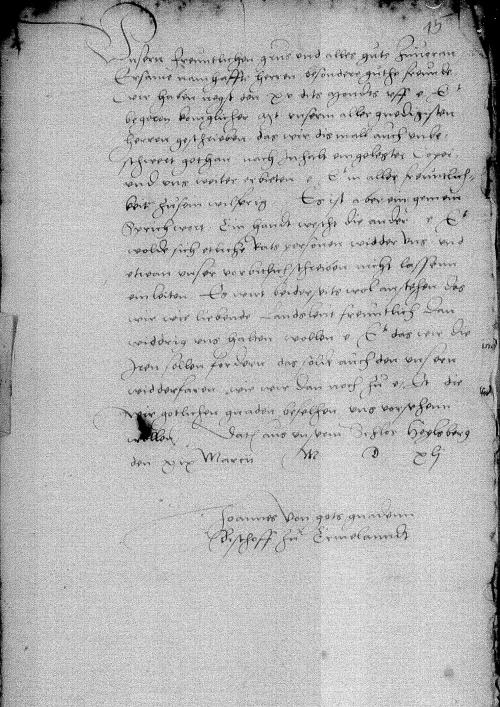 15
Unsern freuntlichen grus und alles guts zuvoran
Ersame namhaffte herren besondere gutte freunde
Wir haben negst den xv dits Monats uff e. Et
begeren koniglicher Mt unserm aller gnedigsten
herren geschrieben das wir dismall auch unbe-
schwert gethan nach Inhalt eingelegter Copei
und uns weiter erbieten e. Et in aller freuntlich-
keit zusein Es ist aber ein gemein
Sprichwort Ein handt wescht die ander e. Et
wolde sich etliche Rats personen widder uns und
etwan unser schreiben nicht lassenn
einleiten Es wirt beiderseits wol anstehen das
wir wie liebende Landsleut freuntlich dan
widdrig uns halten wollen e. Et das wir die
Iren sollen fordern das solde auch den unsern
widderfaren wie wir dan noch zu e. Et die
wir gotlichen gnaden befelhen uns vorsehenn
wollen Dat aus unserm Schlos Heylsberg
den xix Marcii M D xlj
Joannes von gots gnadenn
Bischoff zu Ermelanndt